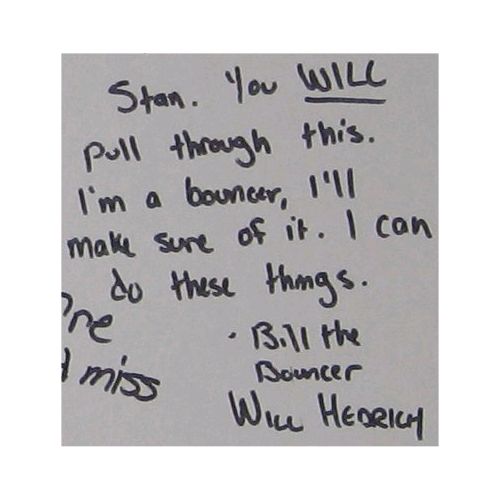 Stan. You WILL
pull through this.
I'm a bouncer, I'll
make sure of it. I can
do these things.
· Bill the
Bouncer
WILL HEDRICH
miss